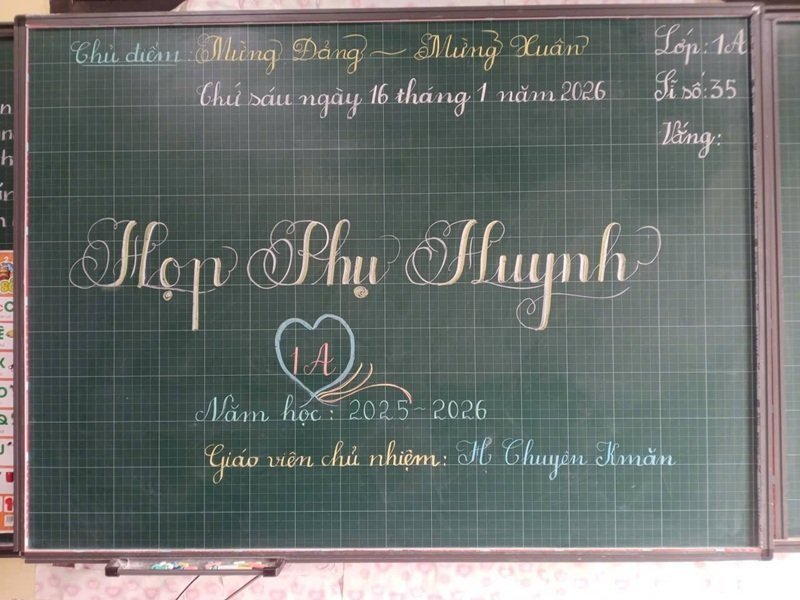 Chủ điểm: Mừng Đảng ~ Mừng Xuân
Lớp: 1A
Thứ sáu ngày 16 tháng 1 năm 2026
Sĩ số: 35
Vắng:
Họp Phụ Huynh
1A
Năm học: 2025~2026
Giáo viên chủ nhiệm: H Chuyên Kmăn